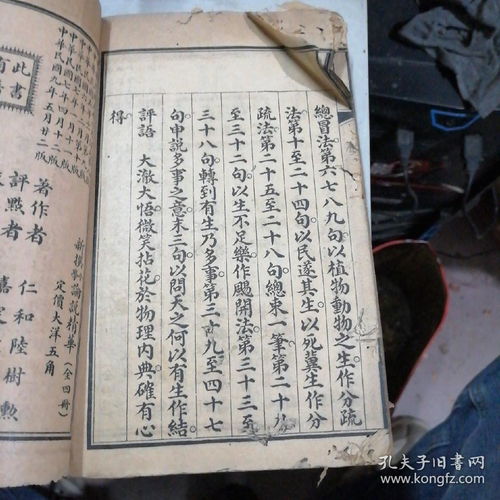 總冒法第六七八九句以植物動物之生作分疏
法第十至二十四句以民遂其生以死冀生作分
疏法第二十五至二十八句總束一筆第二十
至三十二句以生不足樂作颺開法第三十三至
三十八句轉到有生乃多事第三 九至四十七
句申說多事之意末三句以問天之何以有生作結
評語 大澈大悟微笑拈花於物理內典確有心
得
此書有
中華民國九年五月廿二版
著作者 仁和陸樹勲
評點者 嘉定
新撰 論說精華(全四冊)
定價大洋五角
孔夫子旧书网
kongfz.com